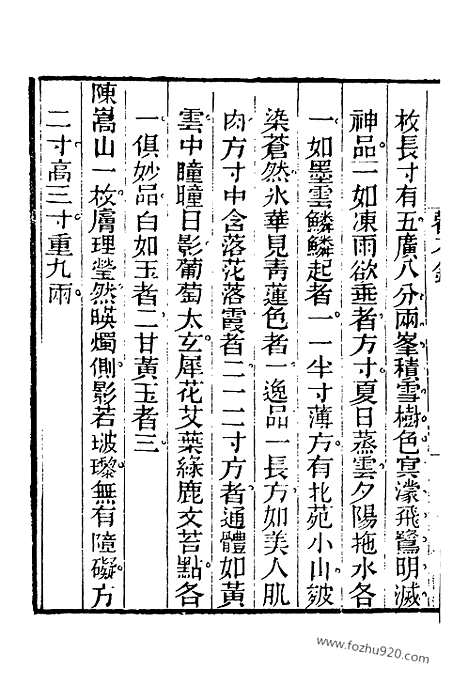 枚長寸有五廣八分兩峯積雪樹色冥濛飛鷺明滅
神品一如凍雨欲垂者方寸夏日蒸雲夕陽拖水各
一如墨雲鱗鱗起者一一半寸薄方有北苑小山皴
染蒼然氷華見靑蓮色者一逸品一長方如美人肌
肉方寸中含落花落霞者二一二寸方者通體如黃
雲中瞳瞳日影葡萄太玄犀花艾葉綠鹿文苔點各
一俱妙品白如玉者二甘黃玉者三
陳嵩山一枚膚理瑩然暎燭側影若玻瓈無有障礙方
二寸高三寸重九兩
www.fozhu920.com